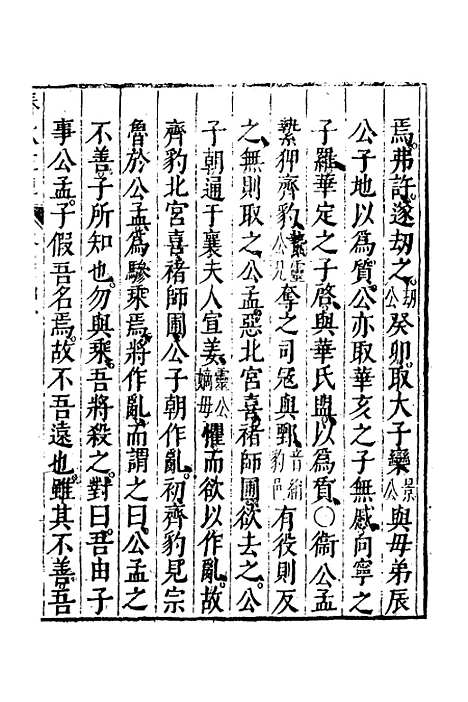 焉。弗許。遂劫之。劫公癸卯。取大子欒景公與母弟辰
公子地以爲質。公亦取華亥之子無慼。向寧之
子羅。華定之子啓。與華氏盟。以爲質。〇衞公孟
縶狎齊豹。縶靈公兄奪之司冦與鄄。音絹豹邑有役則反
之。無則取之。公孟惡北宮喜。褚師圃。欲去之。公
子朝通于襄夫人宣姜。靈公嫡母懼而欲以作亂。故
齊豹。北宮喜。褚師圃。公子朝作亂。初齊豹見宗
魯於公孟。爲驂乘焉。將作亂。而謂之曰。公孟之
不善。子所知也。勿與乘。吾將殺之。對曰。吾由子
事公孟。子假吾名焉。故不吾遠也。雖其不善。吾